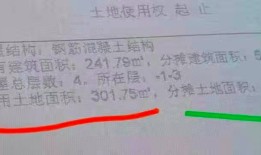 土地使用权 起 止
结构：钢筋混凝土结构
建筑面积：241.79㎡，分摊建筑面积：6
总层数：4，所在层：-1-3
用土地面积：301.75㎡，分摊土地面积：